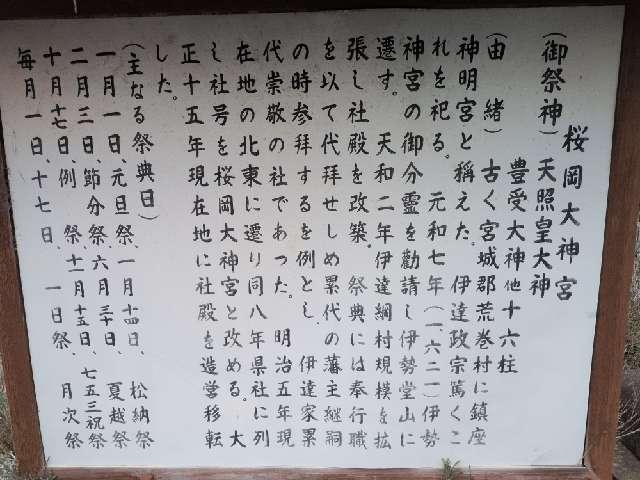 桜岡大神宮
(御祭神)天照皇大神
豊受大神他十六柱
(由緒)古く宮城郡荒巻村に鎮座
神明宮と稱えた。伊達政宗篤くこ
れを祀る。元和七年(一、六二一)伊勢
神宮の御分霊を勸請し伊勢堂山に
遷す。天和二年伊達綱村規模を拡
張し社殿を改築。祭典には奉行職
を以て代拜せしめ累代の藩主継嗣
の時参拜するを例とし、伊達家累
代崇敬の社であった。明治五年現
在地の北東に遷り同八年県社に列
し社号を桜岡大神宮と改める。大
正十五年現在地に社殿を造営移転
した。
(主なる祭典日)
一月一日、元旦祭、一月十四日、松納祭
二月三日、節分祭、六月三十日、夏越祭
十月十七日、例祭、十一月十五日、七五三祝祭
毎月一日、十七日、一日祭、月次祭